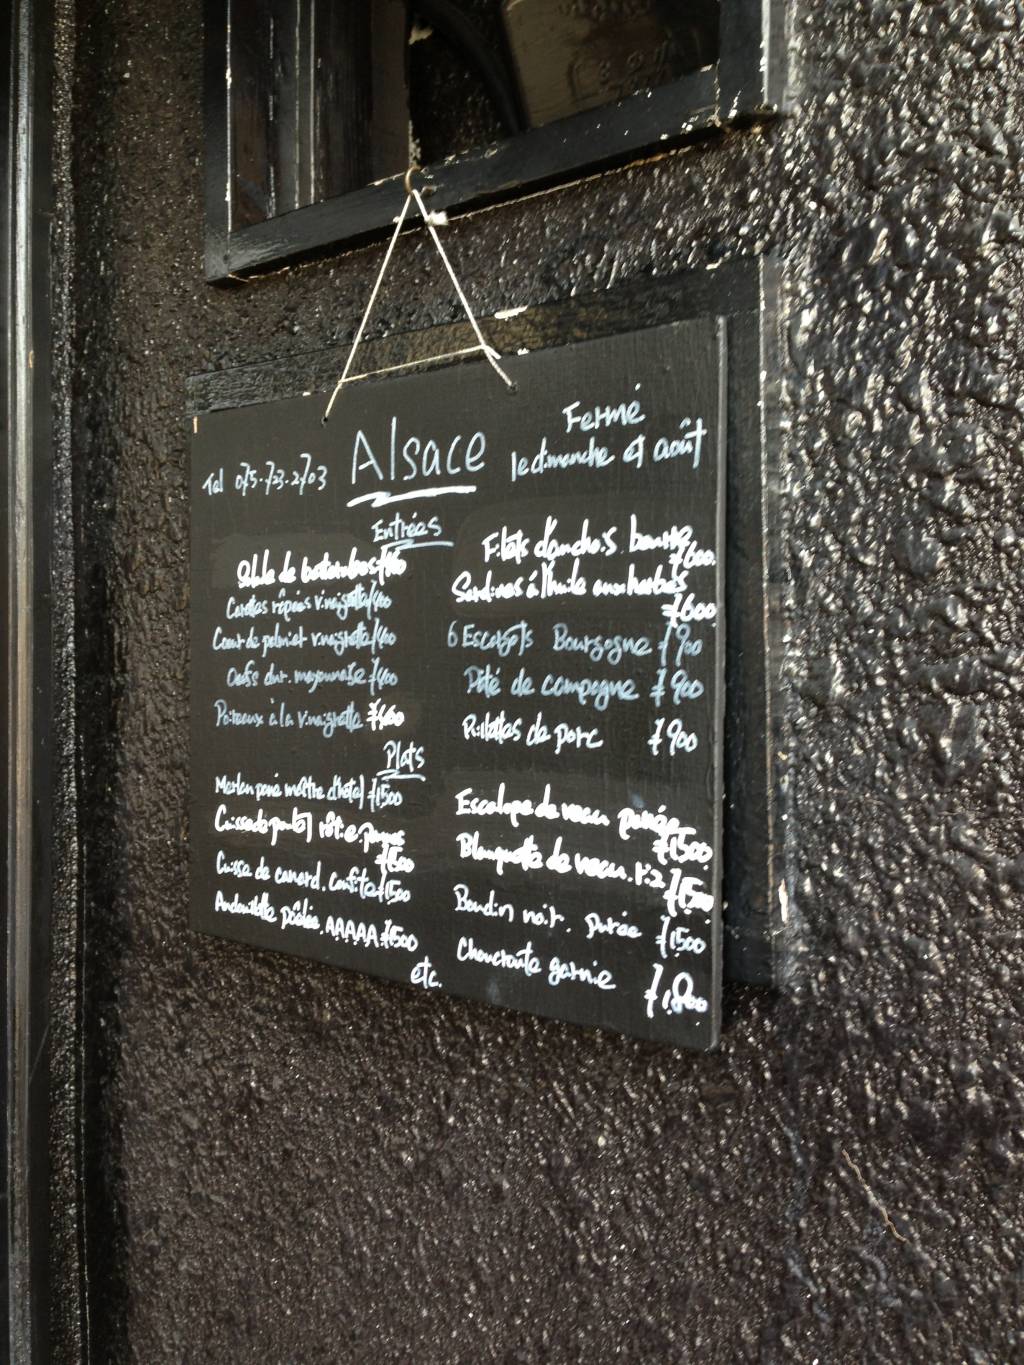 Alsace
Tel 075-723-2703
Fermé
le dimanche et août
Entrées
Salade de betteraves
Carottes râpées vinaigrette ¥400
Coeur de palmier vinaigrette ¥400
Oeufs dur. mayonnaise ¥400
Poireaux à la vinaigrette
Filets d'anchois. beurre
¥600
Sardines à l'huile aux herbes
¥600
6 Escargots Bourgogne ¥900
Pâté de campagne ¥900
Rillettes de porc ¥900
Plats
Merlan pané maître d'hôtel ¥1500
Cuisse de poulet rôtie.
¥1500
Cuisse de canard. confite ¥1500
Andouillette poêlée. AAAAA ¥1500
Escalope de veau panée
¥1500
Blanquette de veau. riz ¥1500
Boudin noir. purée ¥1500
Choucroute garnie
¥1,800
etc.